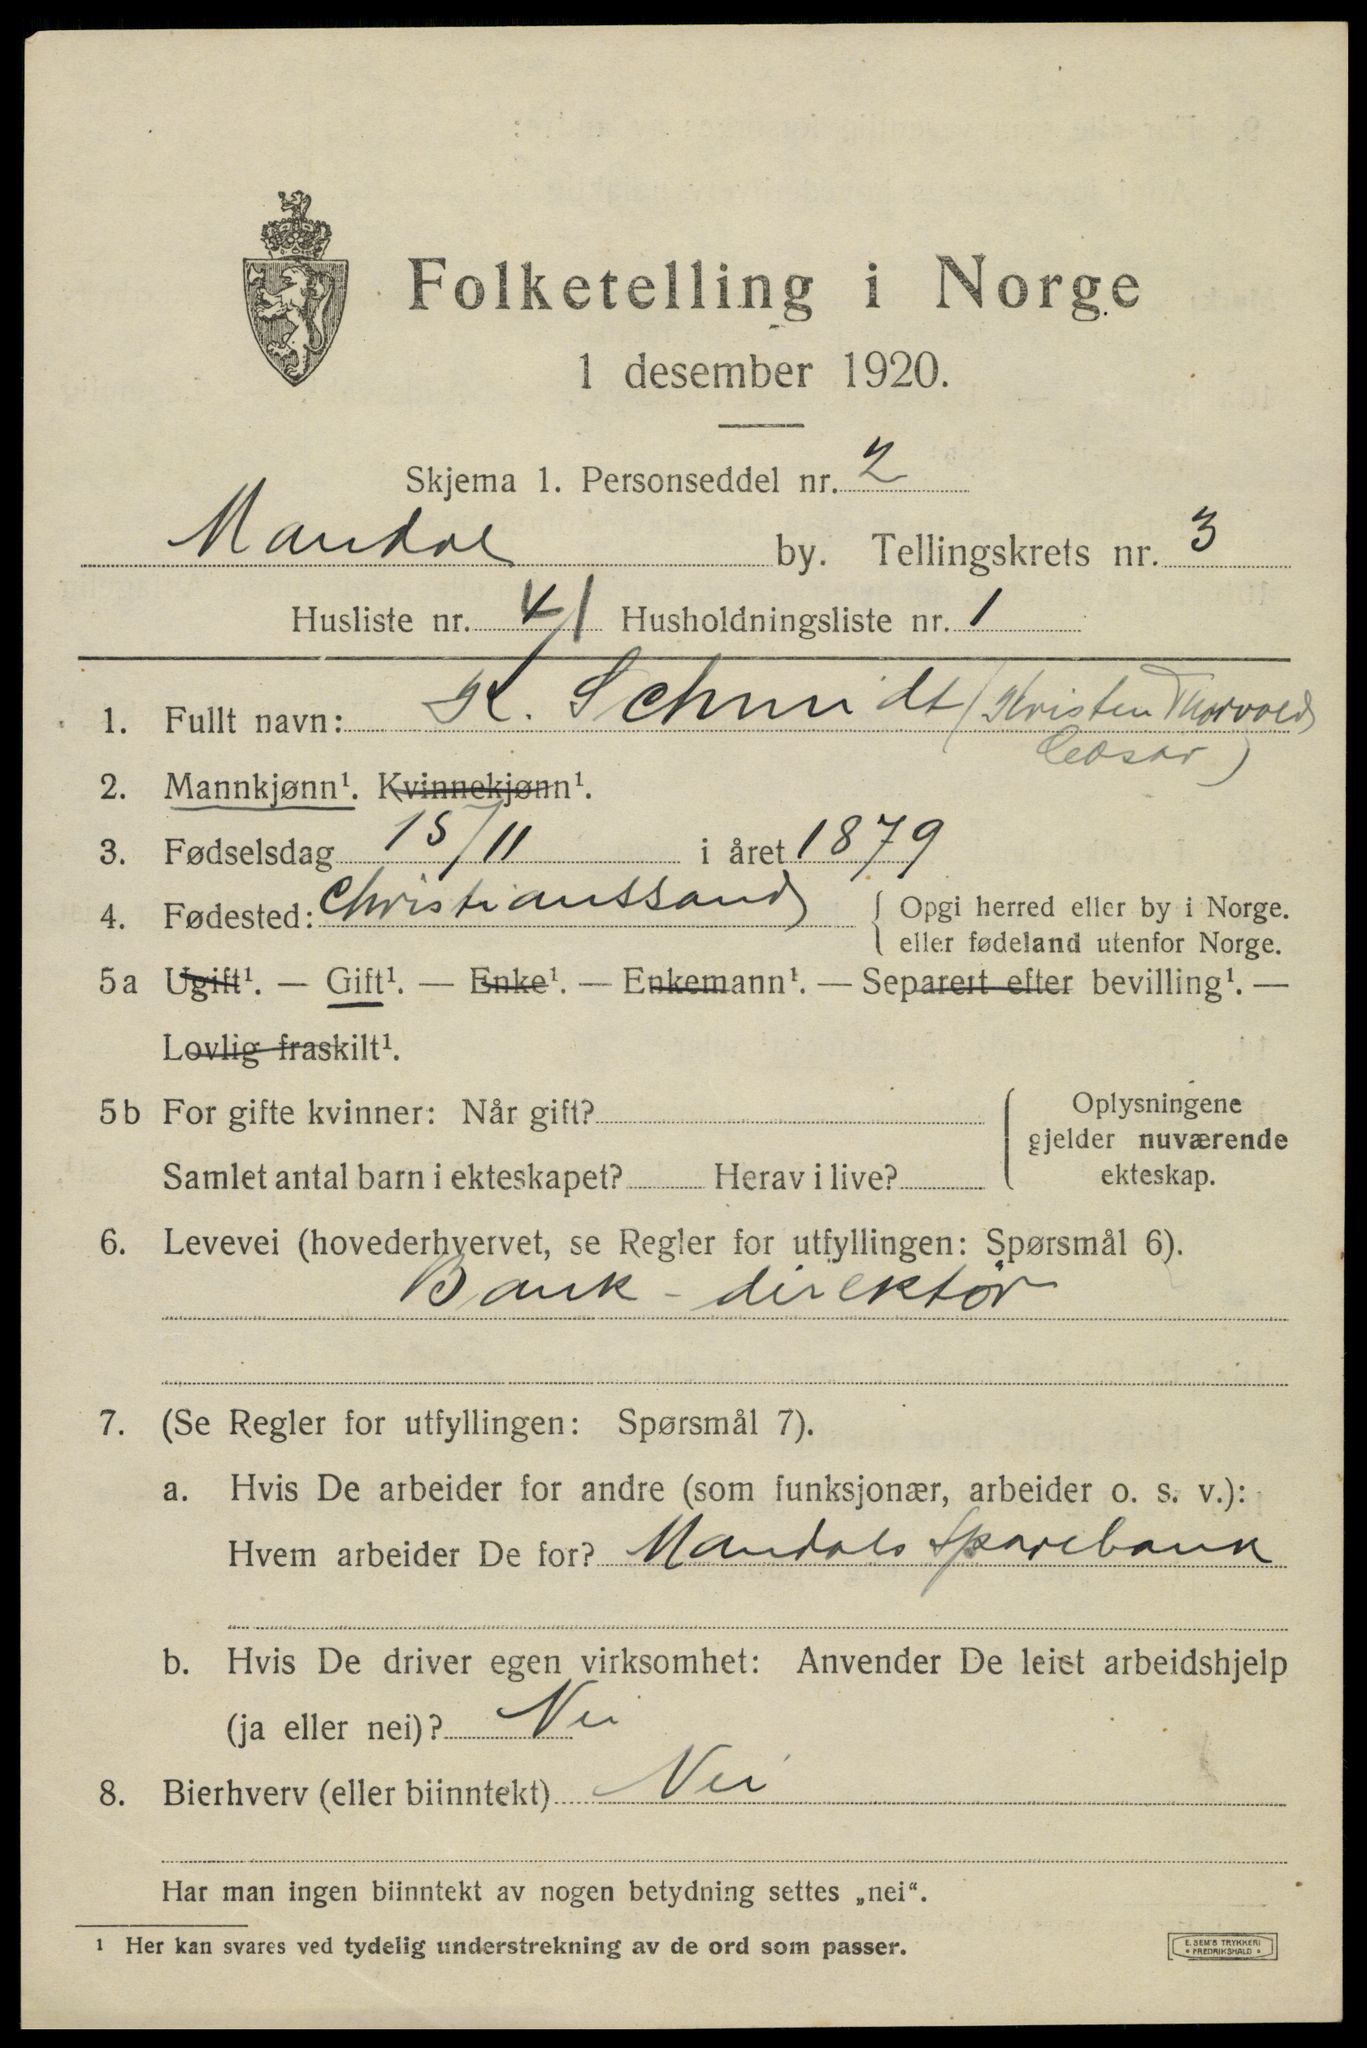 Folketelling i Norge
1 desember 1920.
Skjema 1. Personseddel nr. 2
Mandal by. Tellingskrets nr. 3
Husliste nr. 41 Husholdningsliste nr. 1
1. Fullt navn: K. Schmidt (Kristen Thorvald
Cesar)
2. Mannkjønn¹. Kvinnekjønn¹.
3. Fødselsdag 15/11 i året 1879
4. Fødested: Christianssand { Opgi herred eller by i Norge.
eller fødeland utenfor Norge.
5a Ugift¹. — Gift¹. — Enke¹. — Enkemann¹. — Separert efter bevilling¹. —
Lovlig fraskilt¹.
5b For gifte kvinner: Når gift? Oplysningene
gjelder nuværende
Samlet antal barn i ekteskapet? Herav i live? ekteskap.
6. Levevei (hovederhvervet, se Regler for utfyllingen: Spørsmål 6).
Bank-direktør
7. (Se Regler for utfyllingen: Spørsmål 7).
a. Hvis De arbeider for andre (som funksjonær, arbeider o. s. v.):
Hvem arbeider De for? Mandals Sparebank
b. Hvis De driver egen virksomhet: Anvender De leiet arbeidshjelp
(ja eller nei)? Nei
8. Bierhverv (eller biinntekt) Nei
Har man ingen biinntekt av nogen betydning settes „nei“.
¹ Her kan svares ved tydelig understrekning av de ord som passer.
E. SEM'S TRYKKERI
FREDRIKSHALD